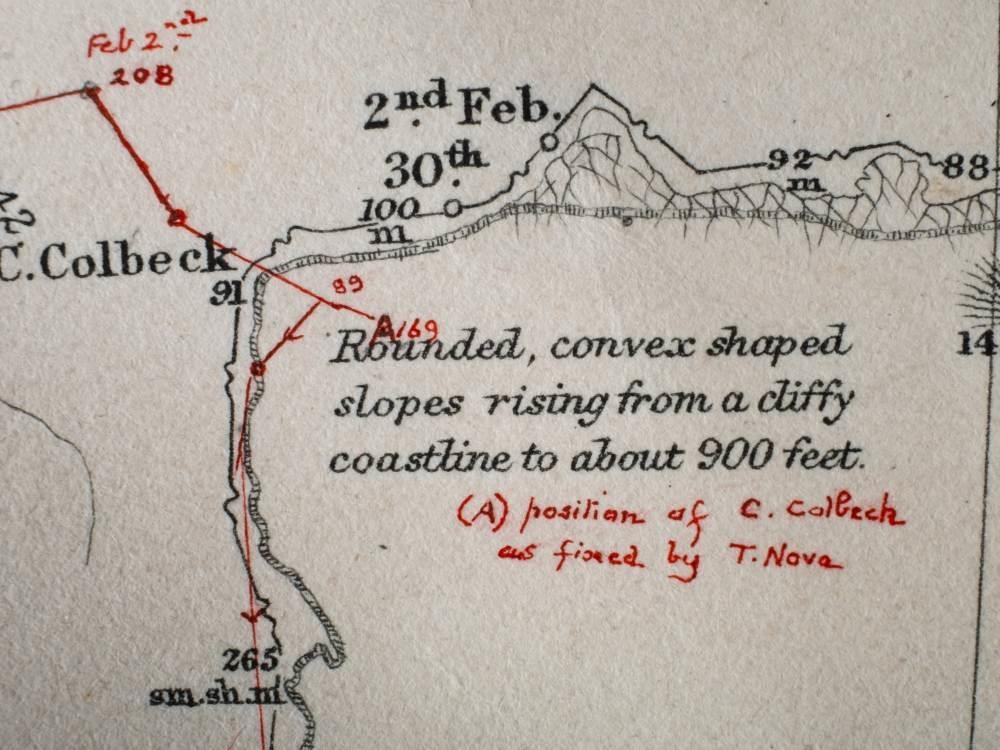 Feb 2nd
208
2nd Feb.
30th
92
m
88
100
m
C. Colbeck
91
89
A 169
14
Rounded, convex shaped
slopes rising from a cliffy
coastline to about 900 feet.
(A) position of C. Colbeck
as fixed by T. Nova
265
sm.sh.m